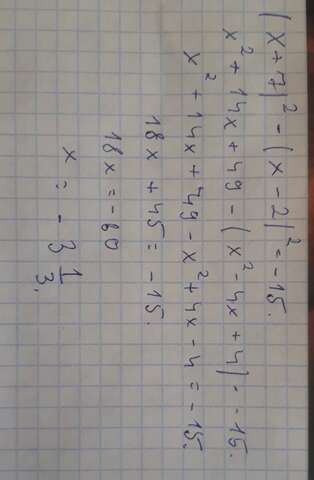 (x+7)² - (x-2)² = -15.
x² + 14x + 49 - (x² - 4x + 4) = -15.
x² + 14x + 49 - x² + 4x - 4 = -15.
18x + 45 = -15.
18x = -60
x = -3 1/3.